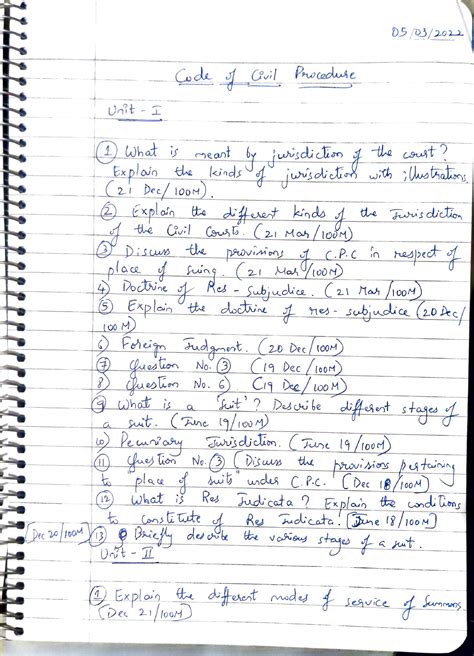 05/03/2022
Code of Civil Procedure
Unit - I
① What is meant by jurisdiction of the court?
Explain the kinds of jurisdiction with illustrations.
(21 Dec/100M).
② Explain the different kinds of the Jurisdiction
of the Civil Courts. (21 Mar/100M)
③ Discuss the provisions of C.P.C in respect of
place of suing. (21 Mar/100M)
④ Doctrine of Res - Subjudice. (21 Mar/100M)
⑤ Explain the doctrine of res- subjudice (20 Dec/
100M)
⑥ Foreign Judgment. (20 Dec/100M)
⑦ Question No. ③ (19 Dec/100M)
⑧ Question No. 6) (19 Dec/100M)
⑨ What is a 'Suit'? Describe different stages of
a suit. (June 19/100M)
⑩ Pecuniary Jurisdiction. (June 19/100M)
⑪ Question No. ③ (Discuss the provisions pertaining
to "place of suits" under C.P.C. (Dec 18/100M)
⑫ What is Res Judicata? Explain the conditions
to constitute of Res Judicata. (June 18/100M)
(Dec 20/100M) ⑬ Briefly describe the various stages of a suit.
Unit - II
① Explain the different modes of service of Summons.
(Dec 21/100M)